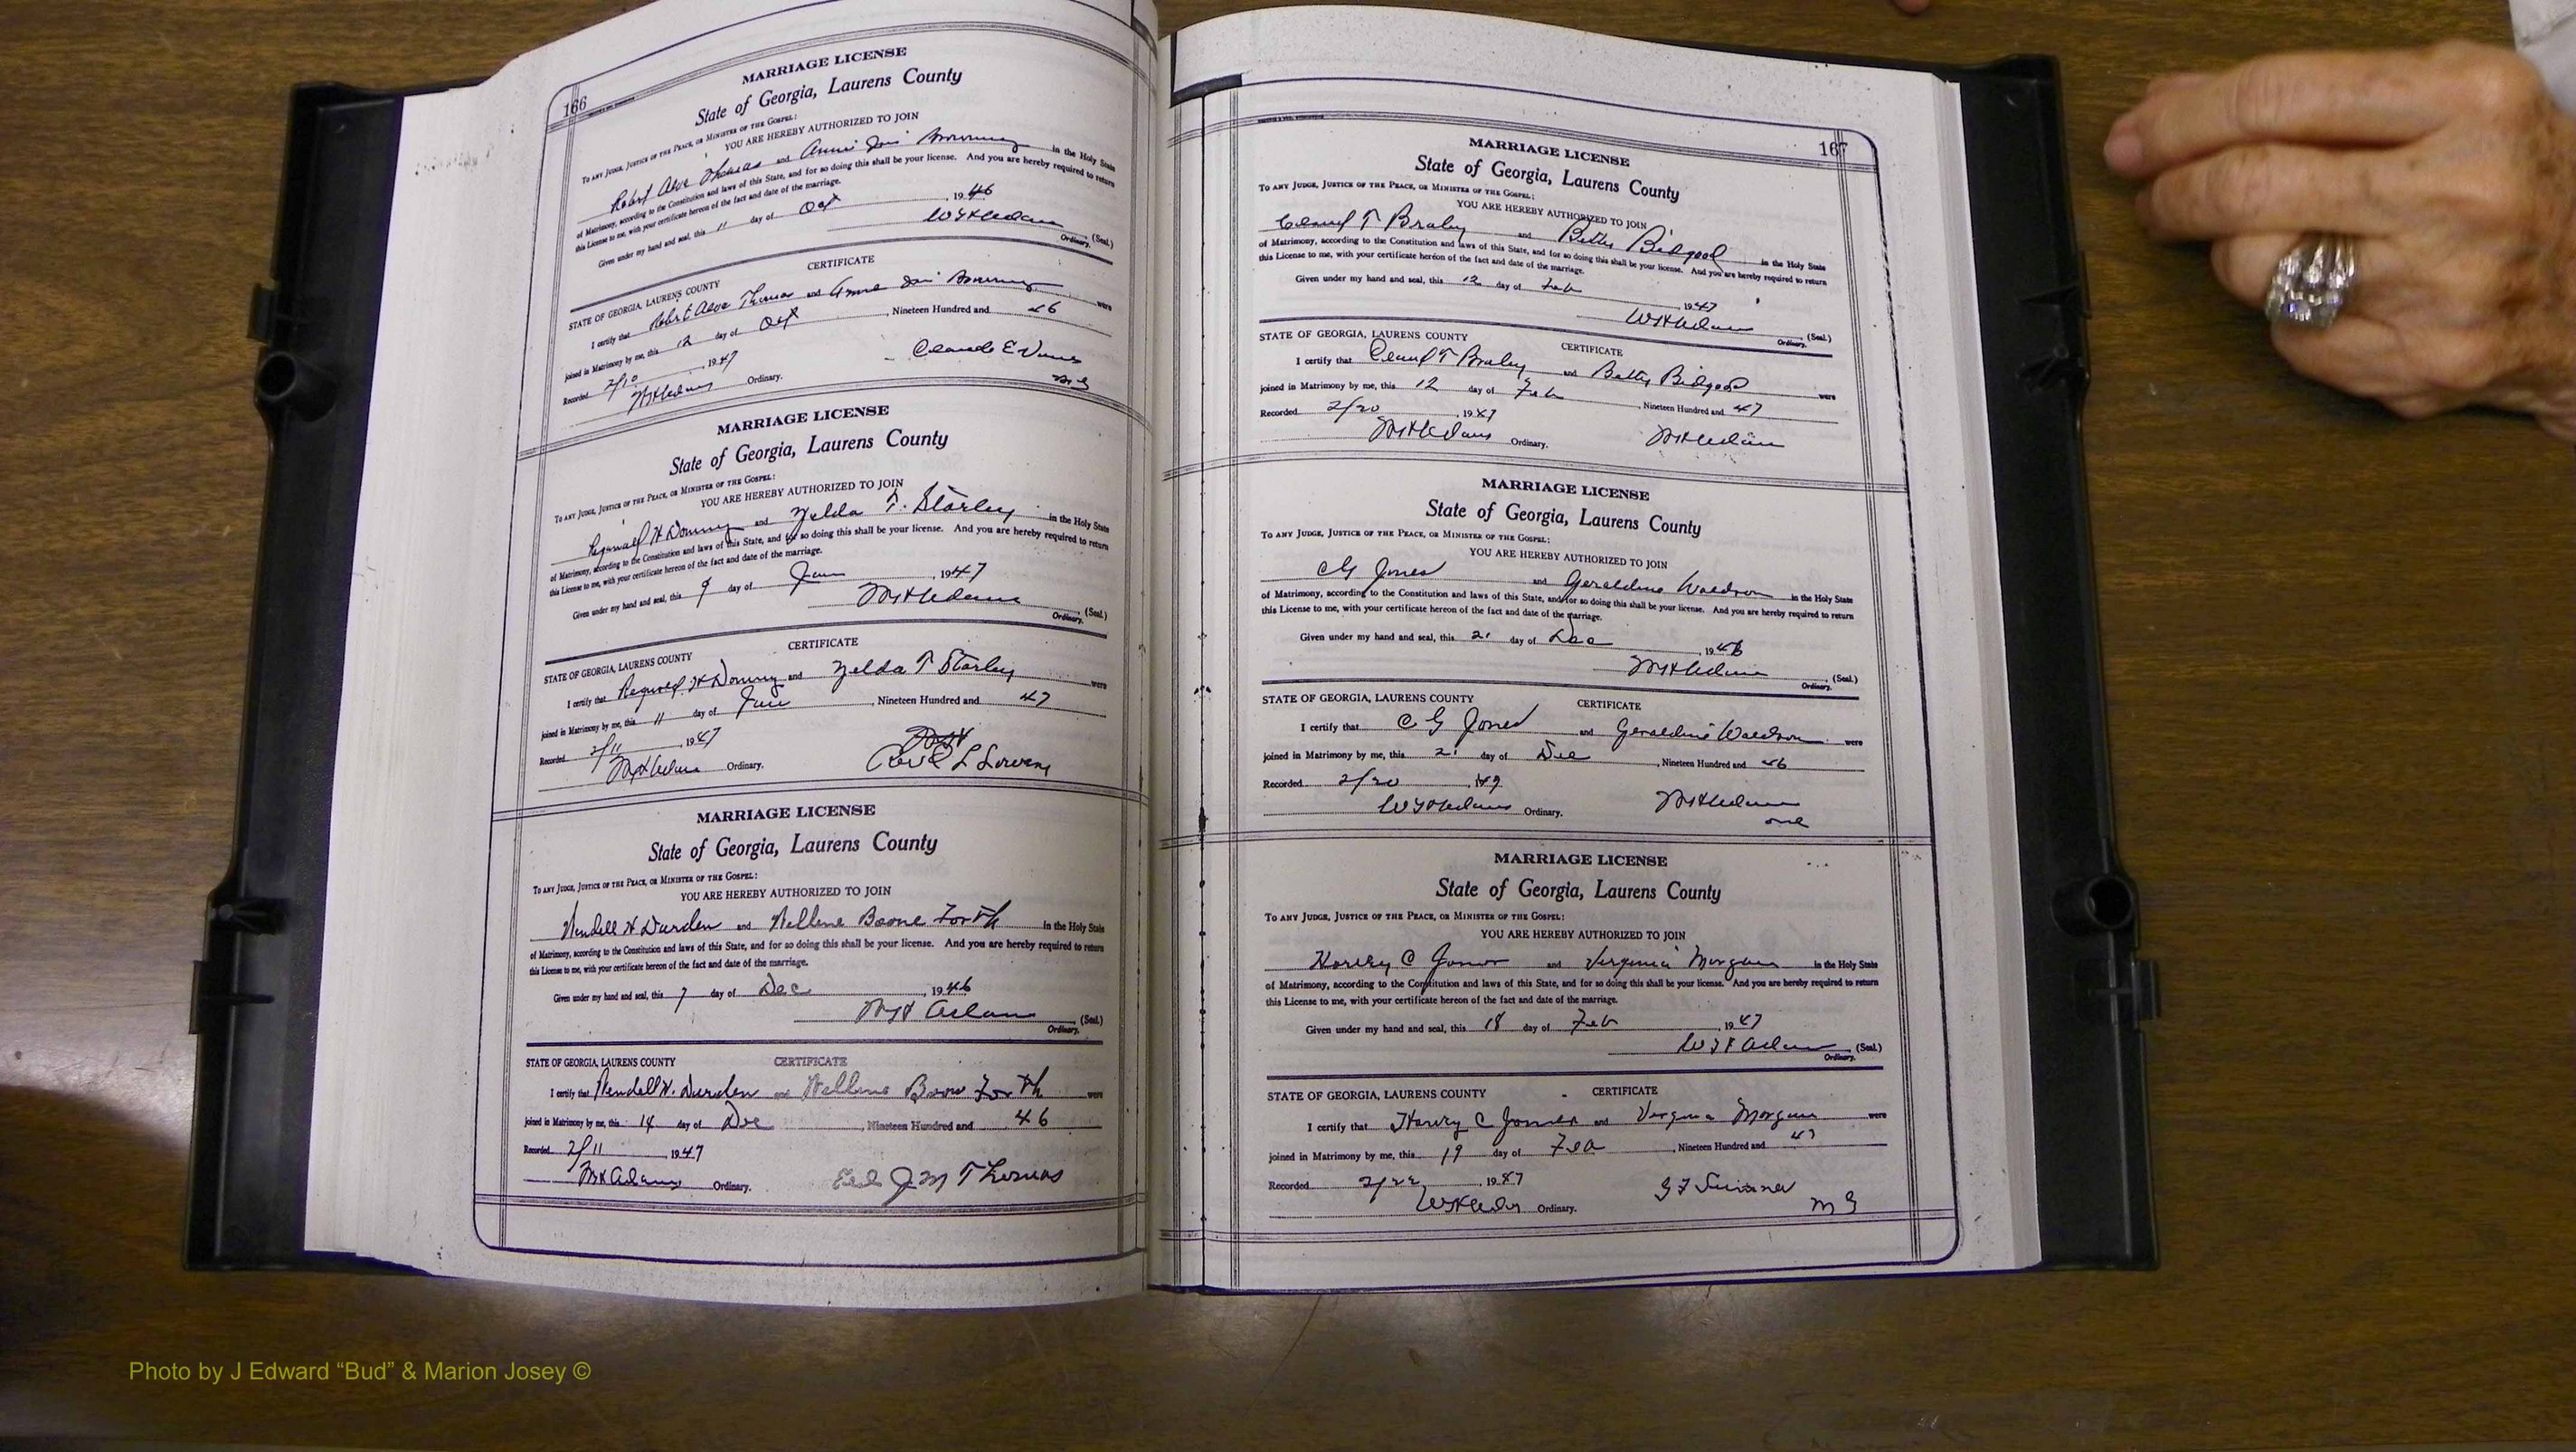 166
MARRIAGE LICENSE
State of Georgia, Laurens County
To any Judge, Justice of the Peace, or Minister of the Gospel:
YOU ARE HEREBY AUTHORIZED TO JOIN
Robert Alva Thomas and Annie in the Holy State
of Matrimony, according to the Constitution and laws of this State, and for so doing this shall be your license. And you are hereby required to return
this License to me, with your certificate hereon of the fact and date of the marriage.
Given under my hand and seal, this 11 day of Oct , 1946
(Seal.)
Ordinary.
CERTIFICATE
STATE OF GEORGIA, LAURENS COUNTY
I certify that Robert Alva Thomas and were
joined in Matrimony by me, this 12 day of Oct , Nineteen Hundred and 46
Recorded 2/10 , 1947
Ordinary.
MARRIAGE LICENSE
State of Georgia, Laurens County
To any Judge, Justice of the Peace, or Minister of the Gospel:
YOU ARE HEREBY AUTHORIZED TO JOIN
and Zelda T. Starley in the Holy State
of Matrimony, according to the Constitution and laws of this State, and for so doing this shall be your license. And you are hereby required to return
this License to me, with your certificate hereon of the fact and date of the marriage.
Given under my hand and seal, this 9 day of , 1947
(Seal.)
Ordinary.
CERTIFICATE
STATE OF GEORGIA, LAURENS COUNTY
I certify that and Zelda T Starley were
joined in Matrimony by me, this 11 day of , Nineteen Hundred and 47
Recorded 2/11 , 1947
Ordinary.
MARRIAGE LICENSE
State of Georgia, Laurens County
To any Judge, Justice of the Peace, or Minister of the Gospel:
YOU ARE HEREBY AUTHORIZED TO JOIN
Wendell H Durden and Nellene Boone Forth in the Holy State
of Matrimony, according to the Constitution and laws of this State, and for so doing this shall be your license. And you are hereby required to return
this License to me, with your certificate hereon of the fact and date of the marriage.
Given under my hand and seal, this 7 day of Dec , 1946
(Seal.)
Ordinary.
STATE OF GEORGIA, LAURENS COUNTY CERTIFICATE
I certify that Wendell H. Durden and Forth were
joined in Matrimony by me, this 14 day of Dec , Nineteen Hundred and 46
Recorded 2/11 , 1947
Ordinary. J M Thomas
167
MARRIAGE LICENSE
State of Georgia, Laurens County
To any Judge, Justice of the Peace, or Minister of the Gospel:
YOU ARE HEREBY AUTHORIZED TO JOIN
T Braley and Betty Bidgood in the Holy State
of Matrimony, according to the Constitution and laws of this State, and for so doing this shall be your license. And you are hereby required to return
this License to me, with your certificate hereon of the fact and date of the marriage.
Given under my hand and seal, this 12 day of Feb , 1947
(Seal.)
Ordinary.
STATE OF GEORGIA, LAURENS COUNTY CERTIFICATE
I certify that T Braley and Betty Bidgood were
joined in Matrimony by me, this 12 day of Feb , Nineteen Hundred and 47
Recorded 2/20 , 1947
Ordinary.
MARRIAGE LICENSE
State of Georgia, Laurens County
To any Judge, Justice of the Peace, or Minister of the Gospel:
YOU ARE HEREBY AUTHORIZED TO JOIN
C G Jones and Geraldine Waldron in the Holy State
of Matrimony, according to the Constitution and laws of this State, and for so doing this shall be your license. And you are hereby required to return
this License to me, with your certificate hereon of the fact and date of the marriage.
Given under my hand and seal, this 21 day of Dec , 1946
(Seal.)
Ordinary.
STATE OF GEORGIA, LAURENS COUNTY CERTIFICATE
I certify that C G Jones and Geraldine Waldron were
joined in Matrimony by me, this 21 day of Dec , Nineteen Hundred and 46
Recorded 2/20
Ordinary.
MARRIAGE LICENSE
State of Georgia, Laurens County
To any Judge, Justice of the Peace, or Minister of the Gospel:
YOU ARE HEREBY AUTHORIZED TO JOIN
C and Virginia Morgan in the Holy State
of Matrimony, according to the Constitution and laws of this State, and for so doing this shall be your license. And you are hereby required to return
this License to me, with your certificate hereon of the fact and date of the marriage.
Given under my hand and seal, this 18 day of Feb , 1947
(Seal.)
Ordinary.
STATE OF GEORGIA, LAURENS COUNTY CERTIFICATE
I certify that C and Virginia Morgan were
joined in Matrimony by me, this 19 day of Feb , Nineteen Hundred and 47
Recorded 2/22 , 1947
Ordinary. M G
Photo by J Edward “Bud” & Marion Josey ©